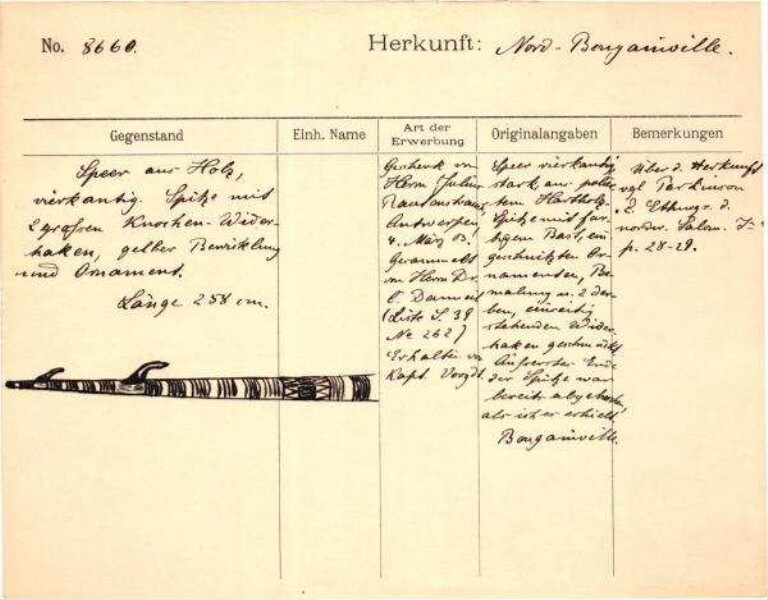 No. 8660.
Herkunft: Nord-Bougainville.
Gegenstand
Einh. Name
Art der
Erwerbung
Originalangaben
Bemerkungen
Speer aus Holz,
vierkantig. Spitze mit
2 großen Knochen-Wider-
haken, gelber Bewicklung
und Ornament.
Länge 258 cm.
Geschenk von
Herrn Julius
Rautenstrauch,
Antwerpen,
4. März 03.
Gesammelt
von Herrn Dr.
(Liste S. 39
No 262)
Erhalten von
Kapt. Voogdt.
Speer vierkantig,
stark, aus polier-
tem Hartholz.
Spitze mit far-
bigem Bast, ein-
geschnitzten Or-
namenten, Be-
malung u. 2 der-
ben, einseitig
stehenden Wider-
haken geschmückt.
Äusserster Ende
der Spitze war
bereits abgebrochen,
als ich er erhielt.
Bougainville.
Über d. Herkunft
vgl. Parkinson
z. Ethnogr. d.
nördw. Salom. I.
p. 28-29.